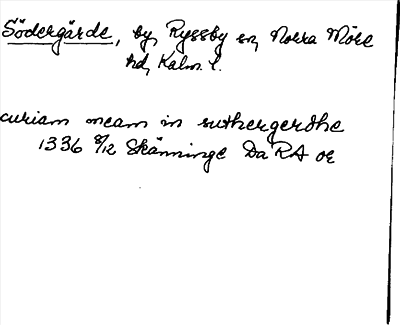 Södergärde, by, Ryssby sn, Norra Möre
hd, Kalm. l.
curiam meam in suthergerdhe
1336 8/12 Skänninge DaRA or